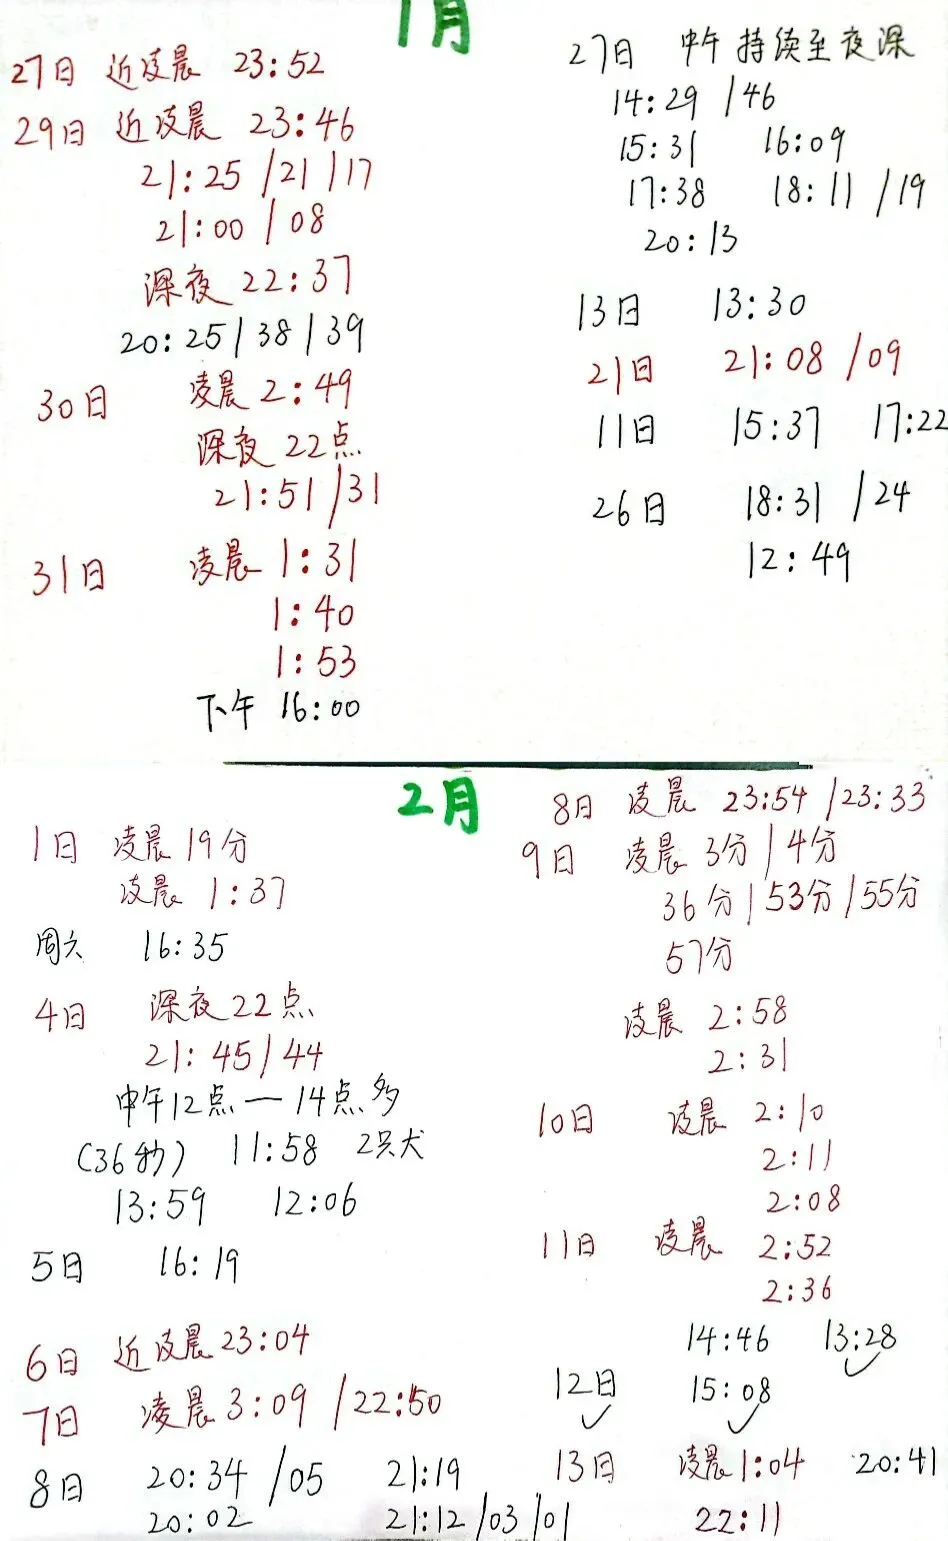 1月
27日 近凌晨 23:52
29日 近凌晨 23:46
21:25 /21 /17
21:00 / 08
深夜 22:37
20:25 / 38 / 39
30日 凌晨 2:49
深夜 22点
21:51 /31
31日 凌晨 1:31
1:40
1:53
下午 16:00
27日 中午 持续至夜深
14:29 /46
15:31 16:09
17:38 18:11 /19
20:13
13日 13:30
21日 21:08 /09
11日 15:37 17:22
26日 18:31 /24
12:49
2月
1日 凌晨 19分
凌晨 1:37
周六 16:35
4日 深夜 22点
21:45/44
中午12点一14点多
(36秒) 11:58 2只犬
13:59 12:06
5日 16:19
6日 近凌晨 23:04
7日 凌晨 3:09 /22:50
8日 20:34 /05 21:19
20:02 21:12 /03 /01
8日 凌晨 23:54 /23:33
9日 凌晨 3分 / 4分
36分 / 53分 /55分
57分
凌晨 2:58
2:31
10日 凌晨 2:10
2:11
2:08
11日 凌晨 2:52
2:36
14:46 13:28
12日 15:08
13日 凌晨 1:04 20:41
22:11